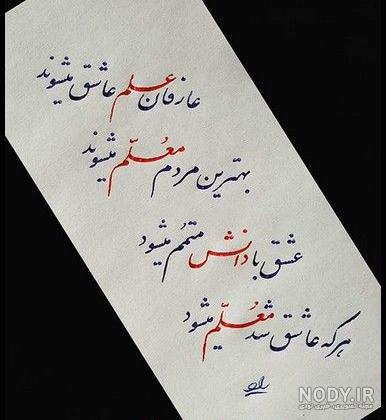 عارفان علم عاشق میشوند
بهترین مردم معلّم میشوند
عشق با دانش متمم میشود
هر که عاشق شد معلّم میشود
NODY.IR